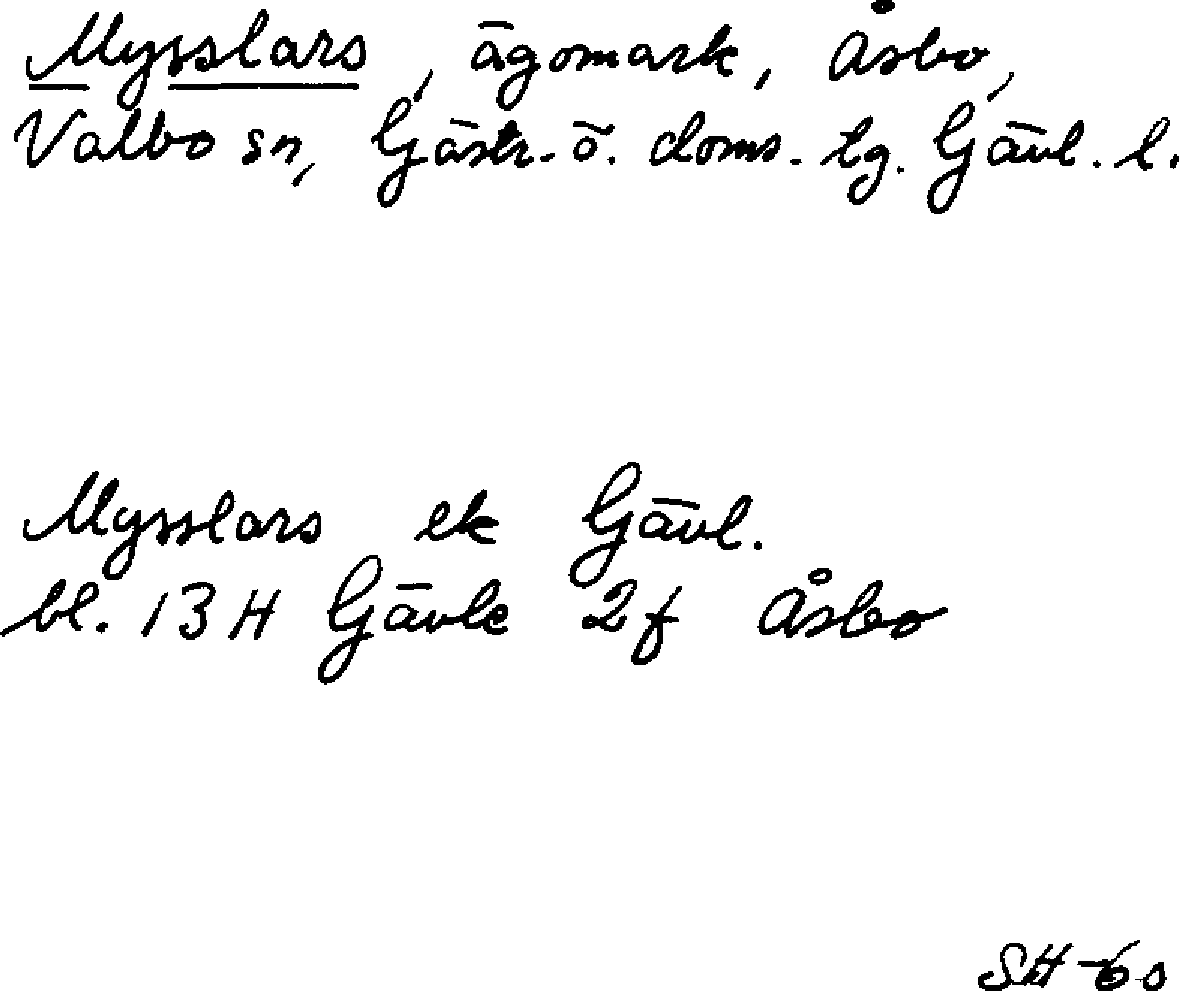 Mysslars, ägomark, Åsbo,
Valbo sn, Gästr. ö. doms. tg. Gävl. l.
Mysslars ek Gävl.
bl. 13H Gävle 2f Åsbo
SH -60